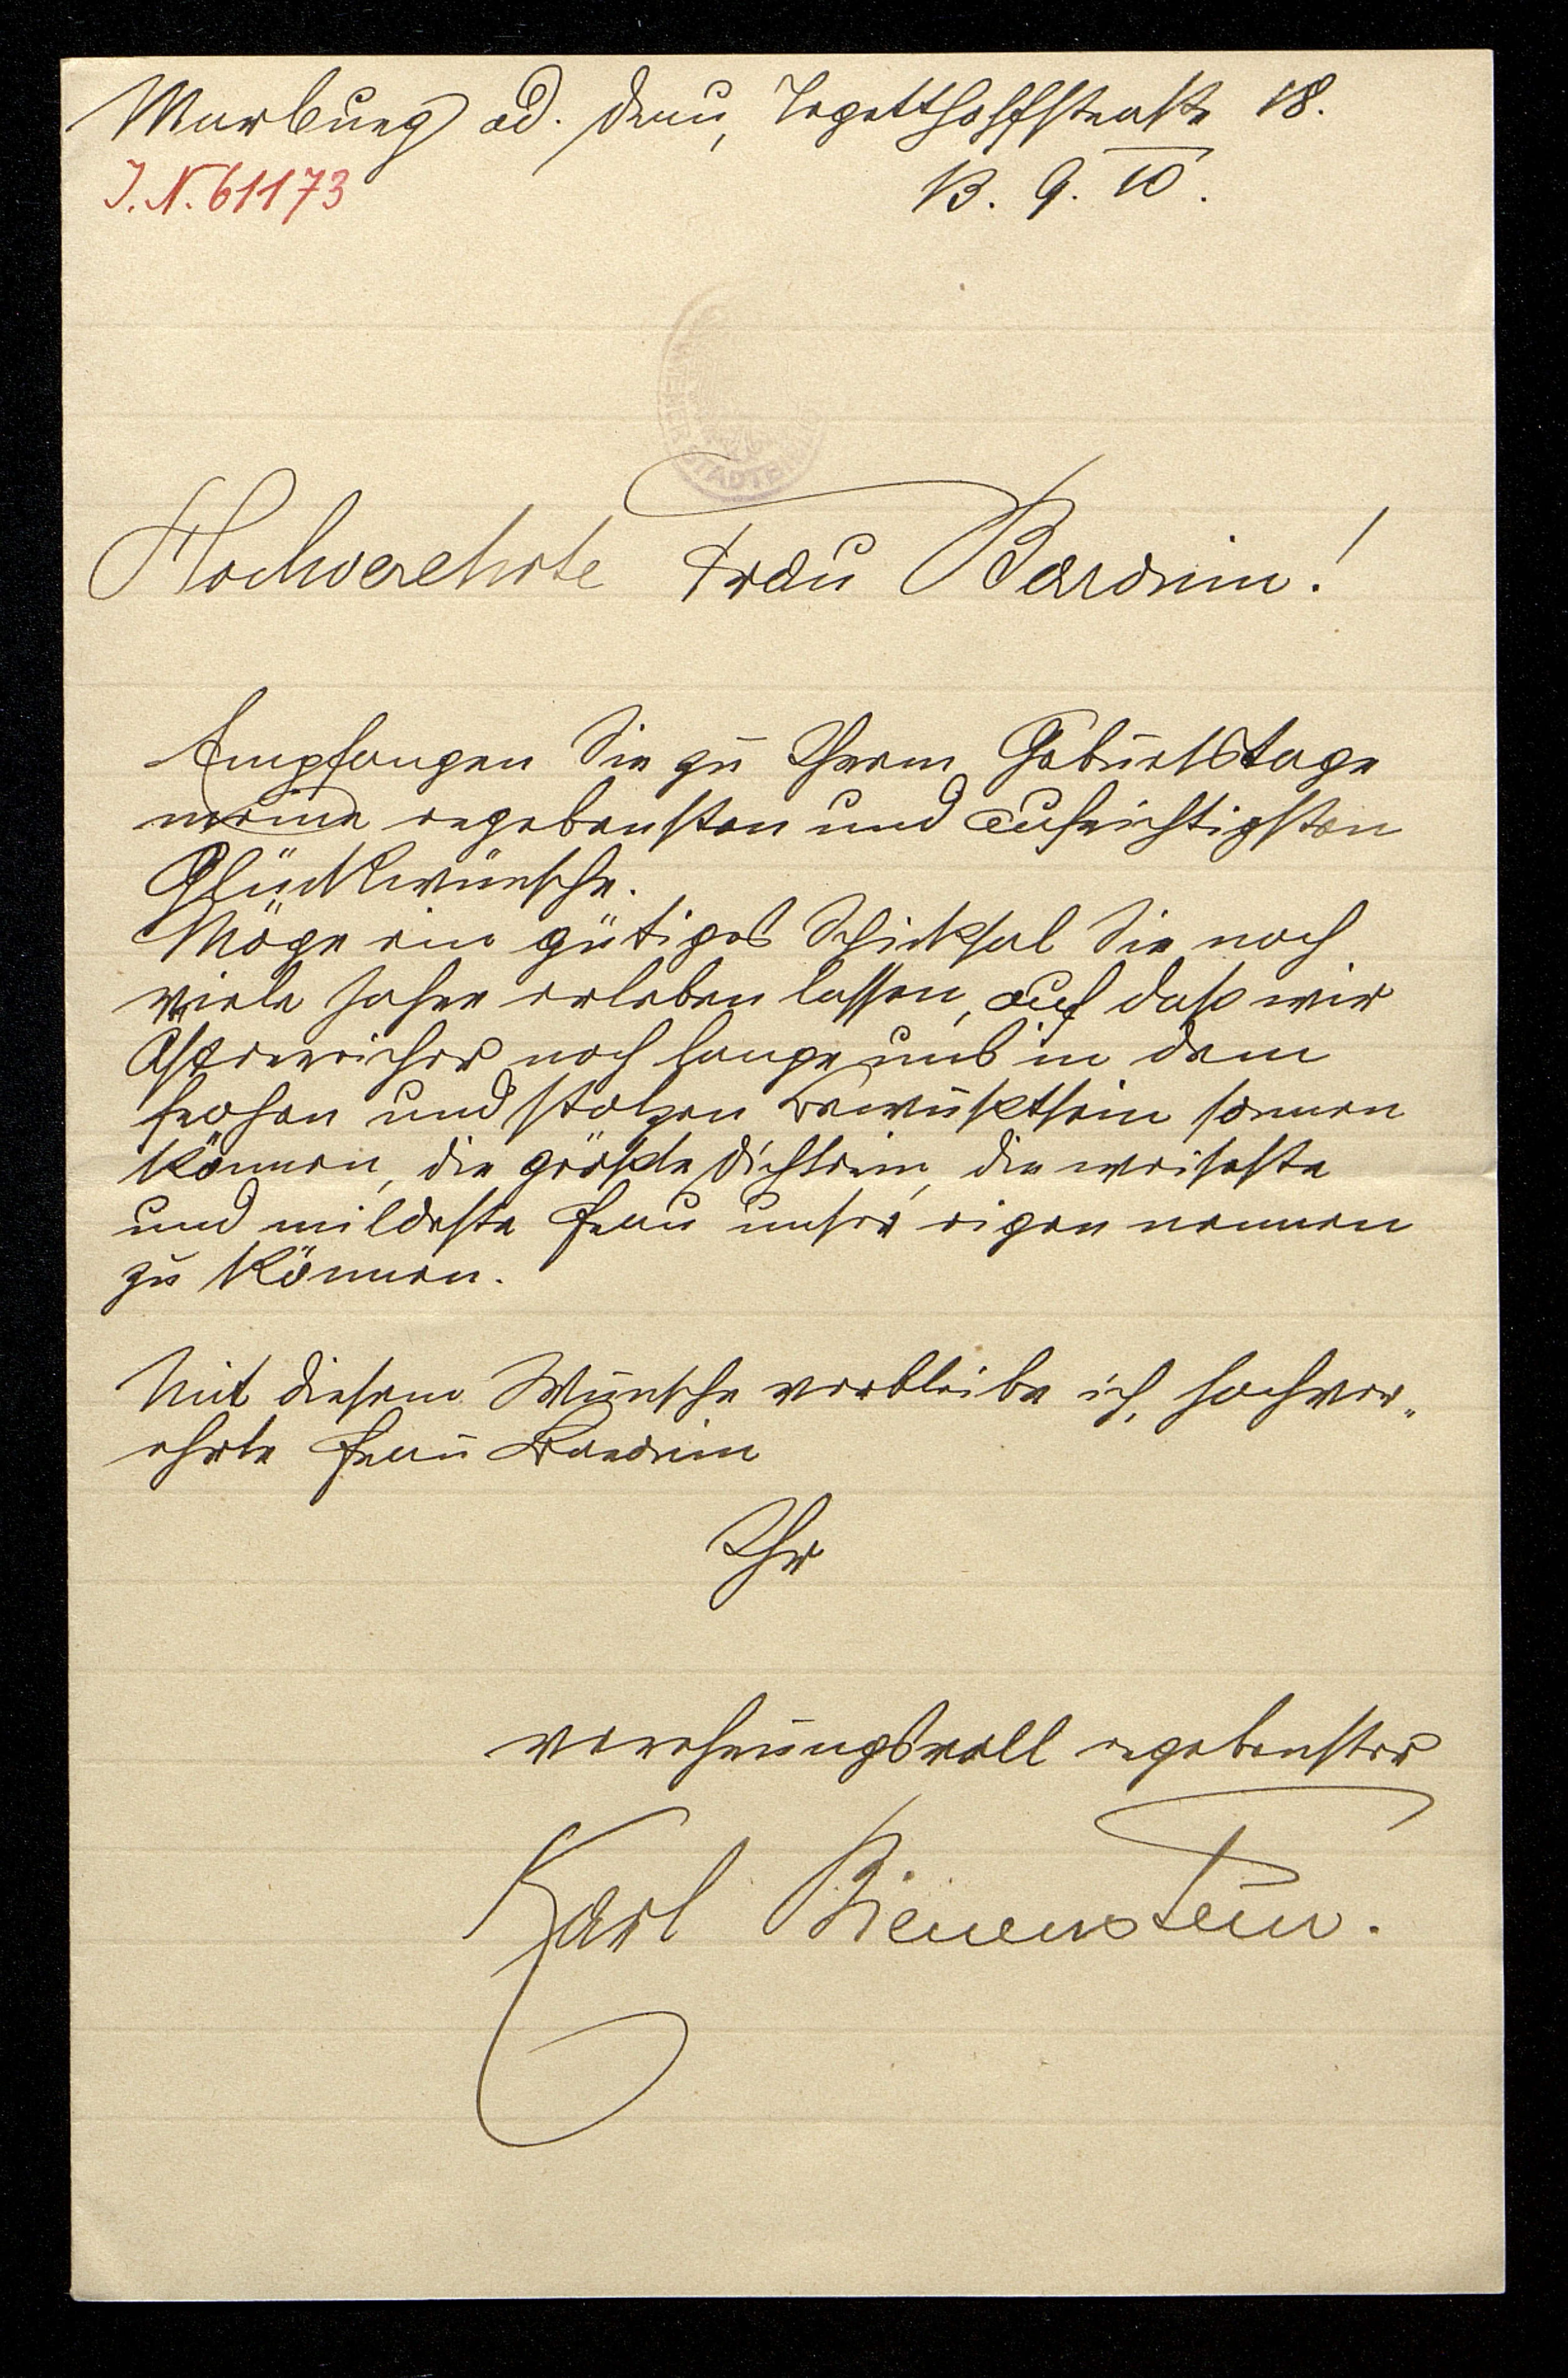 Marburg a/d. Drau, Tegetthoffstraße 18.
J.N. 61173
13. 9. 10.
WIENER STADTBIBL
Hochverehrte Frau Baronin!
Empfangen Sie zu Ihrem Geburtstage
meine ergebensten und aufrichtigsten
Glückwünsche.
Möge ein gütiges Schicksal Sie noch
viele Jahre erleben lassen, auf daß wir
Österreicher noch lange uns in dem
frohen und stolzen Bewußtsein sonnen
können, die größte Dichterin, die weiseste
und mildeste Frau unser eigen nennen
zu können.
Mit diesem Wunsche verbleibe ich, hochver-
ehrte Frau Baronin
Ihr
verehrungsvoll ergebenster
Karl Bienenstein.